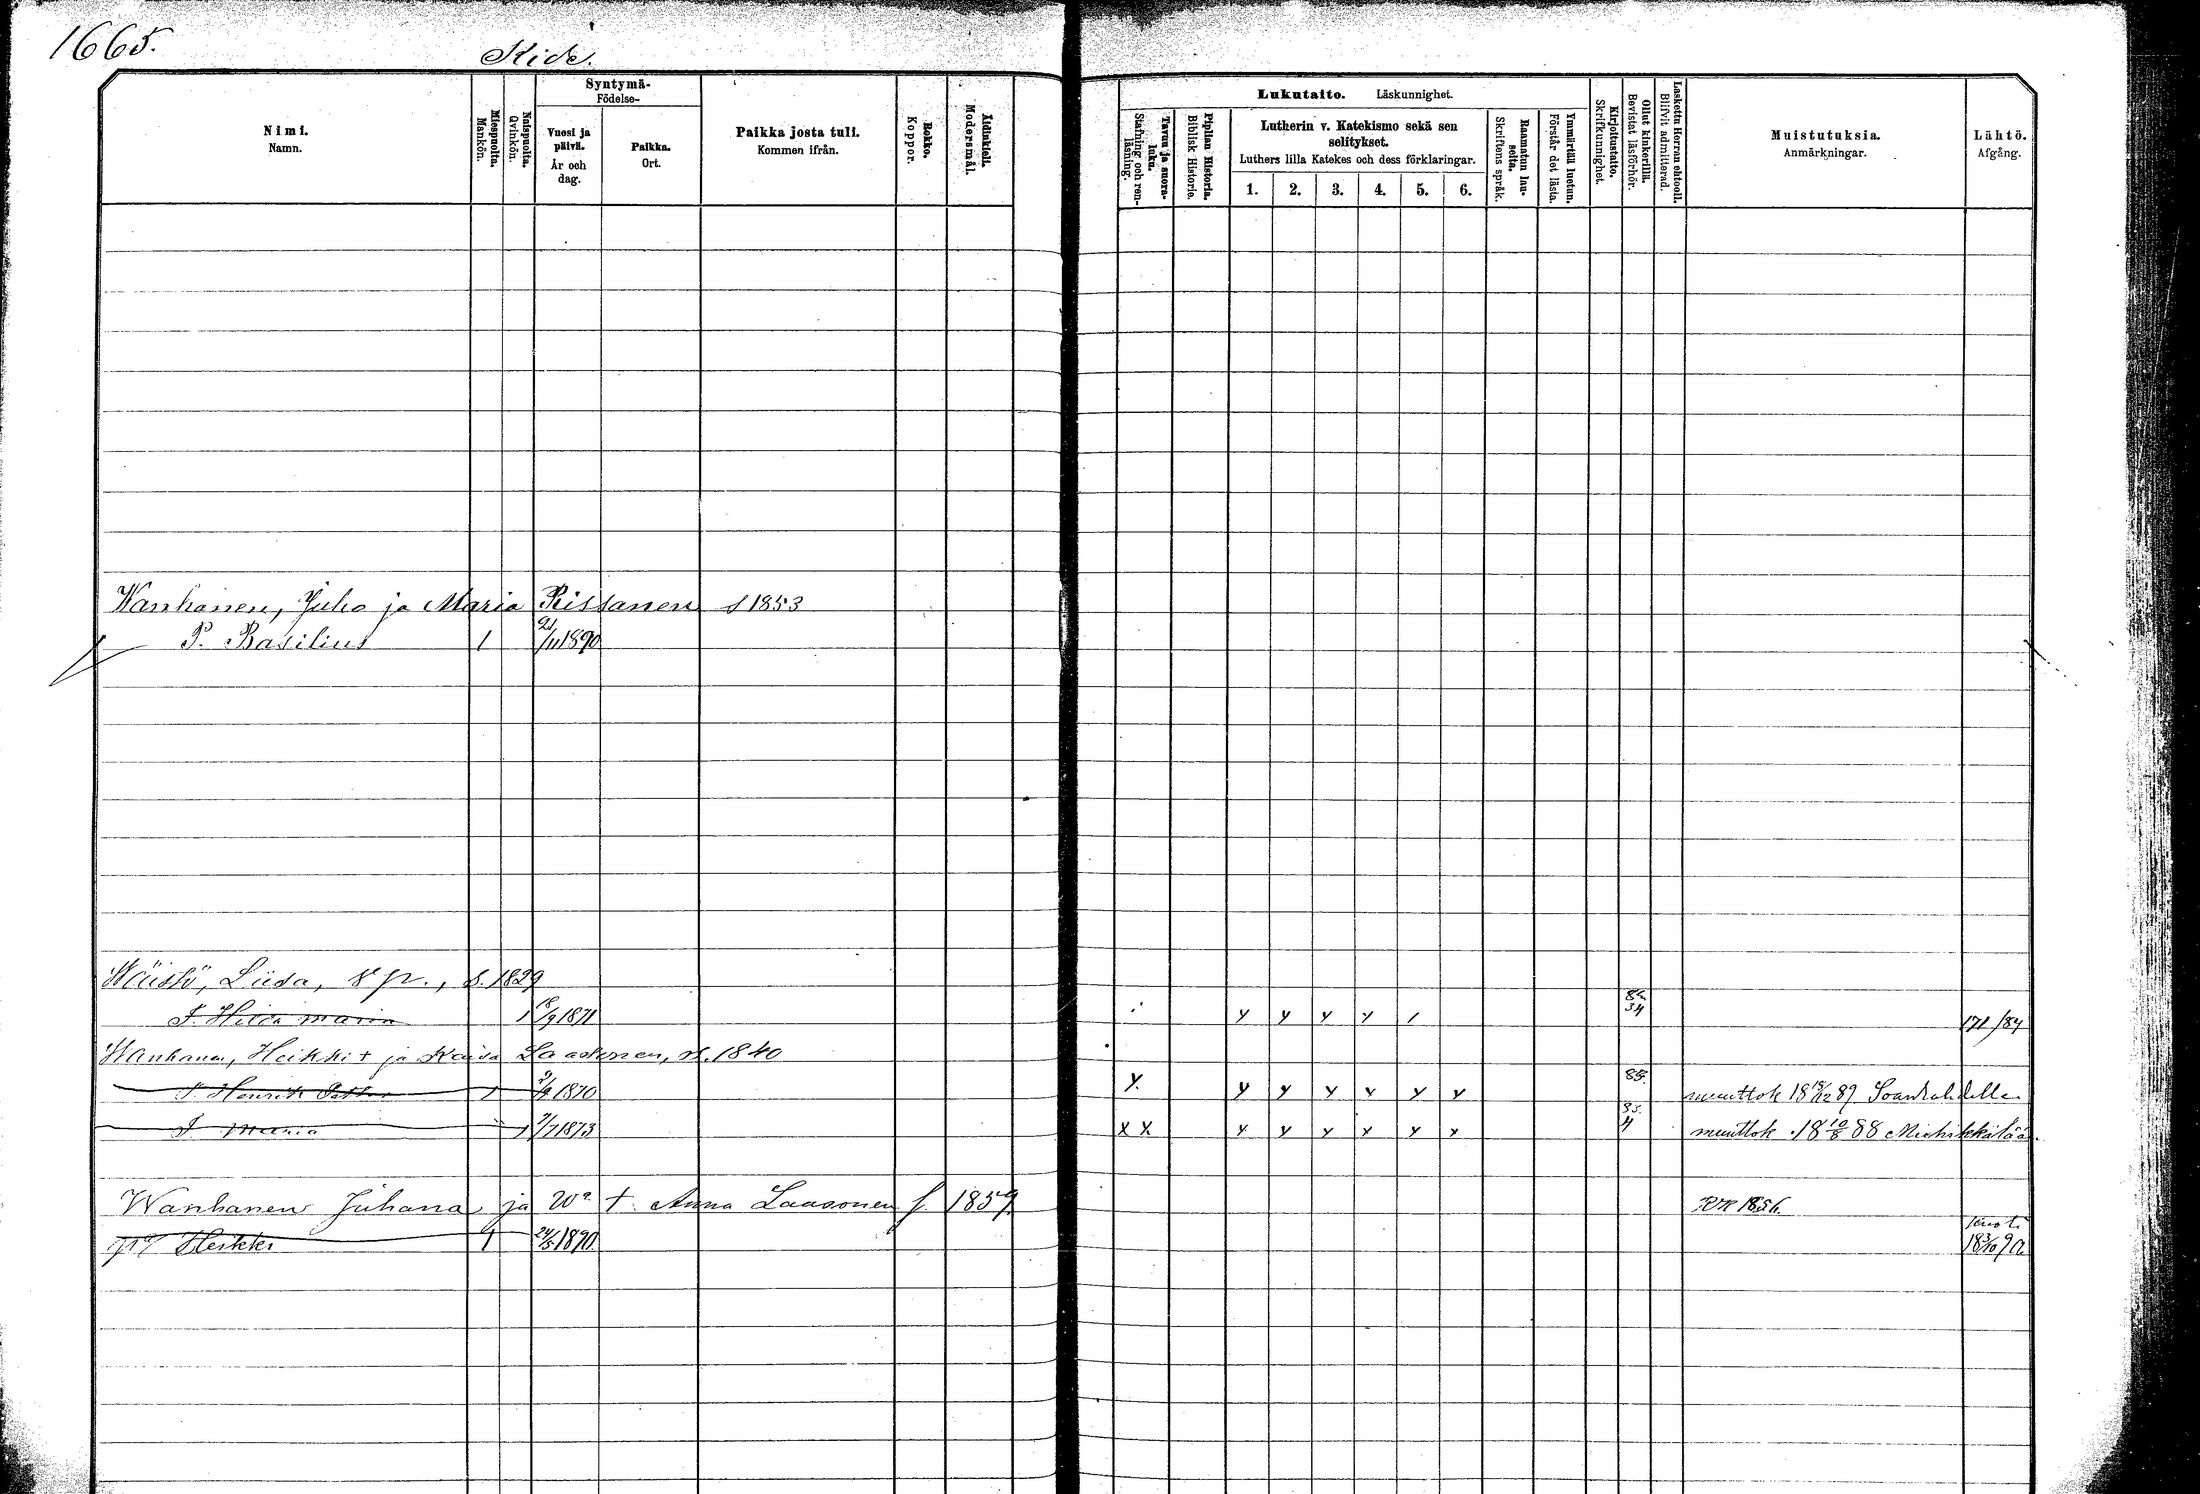 1665.
Kide.
Nimi.
Namn.
Miespuolta.
Mankön.
Naispuolta.
Qvinkön.
Syntymä-
Födelse-
Vuosi ja
päivä.
År och
dag.
Paikka.
Ort.
Paikka josta tuli.
Kommen ifrån.
Rokko.
Koppor.
Äidinkieli.
Modersmål.
Lukutaito. Läskunnighet.
Tavuu ja suora-
luku.
Stafning och ren-
läsning.
Piplian Historia.
Biblisk Historie.
Lutherin v. Katekismo sekä sen
selitykset.
Luthers lilla Katekes och dess förklaringar.
1. 2. 3. 4. 5. 6.
Raamatun lau-
seita.
Skriftens språk.
Ymmärtää luetun.
Förstår det lästa.
Kirjoitustaito.
Skrifkunnighet.
Ollut kinkerillä.
Bevistat läsförhör.
Laskettu Herran ehtooll.
Blifvit admitterad.
Muistutuksia.
Anmärkningar.
Lähtö.
Afgång.
Wanhanen, Juho ja Maria Rissanen s 1853
P. Basilius 1 21/11 1890
Wäistö, Liisa, s. 1829
T. Hilda Maria 1 18/9 1871 y y y y / 84 34 171/84
Wanhanen, Heikki + ja Kaisa Laasonen, s. 1840
P. Henrik 1 1870 y. y y y y y y 88. muuttok 18 15/12 87
T. Maria 1 7/7 1873 x x x y y x y x 4 muuttok 18 10/8 88
Wanhanen Juhana ja Wa + Anna Laasonen s. 1859 RK 1856.
Heikki 1 24/5 1890 kuoli
18 3/10 90